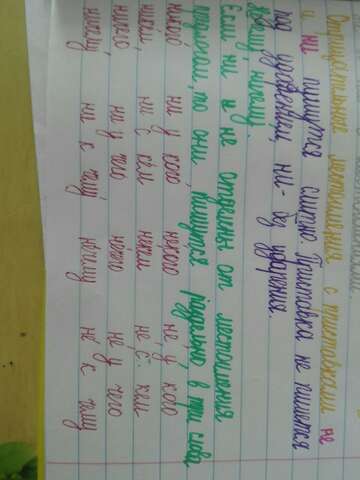 Отрицательные местоимения с приставками не
и ни пишутся слитно. Приставка не пишется
под ударением, ни - без ударения.
никому.
Если ни и не отделены от местоимения
предлогом, то они пишутся раздельно в три слова
никого ни у кого некого не у кого
никем, ни с кем некем не с кем
ничего ни у чего нечего не у чего
ничему ни к чему нечему не к чему